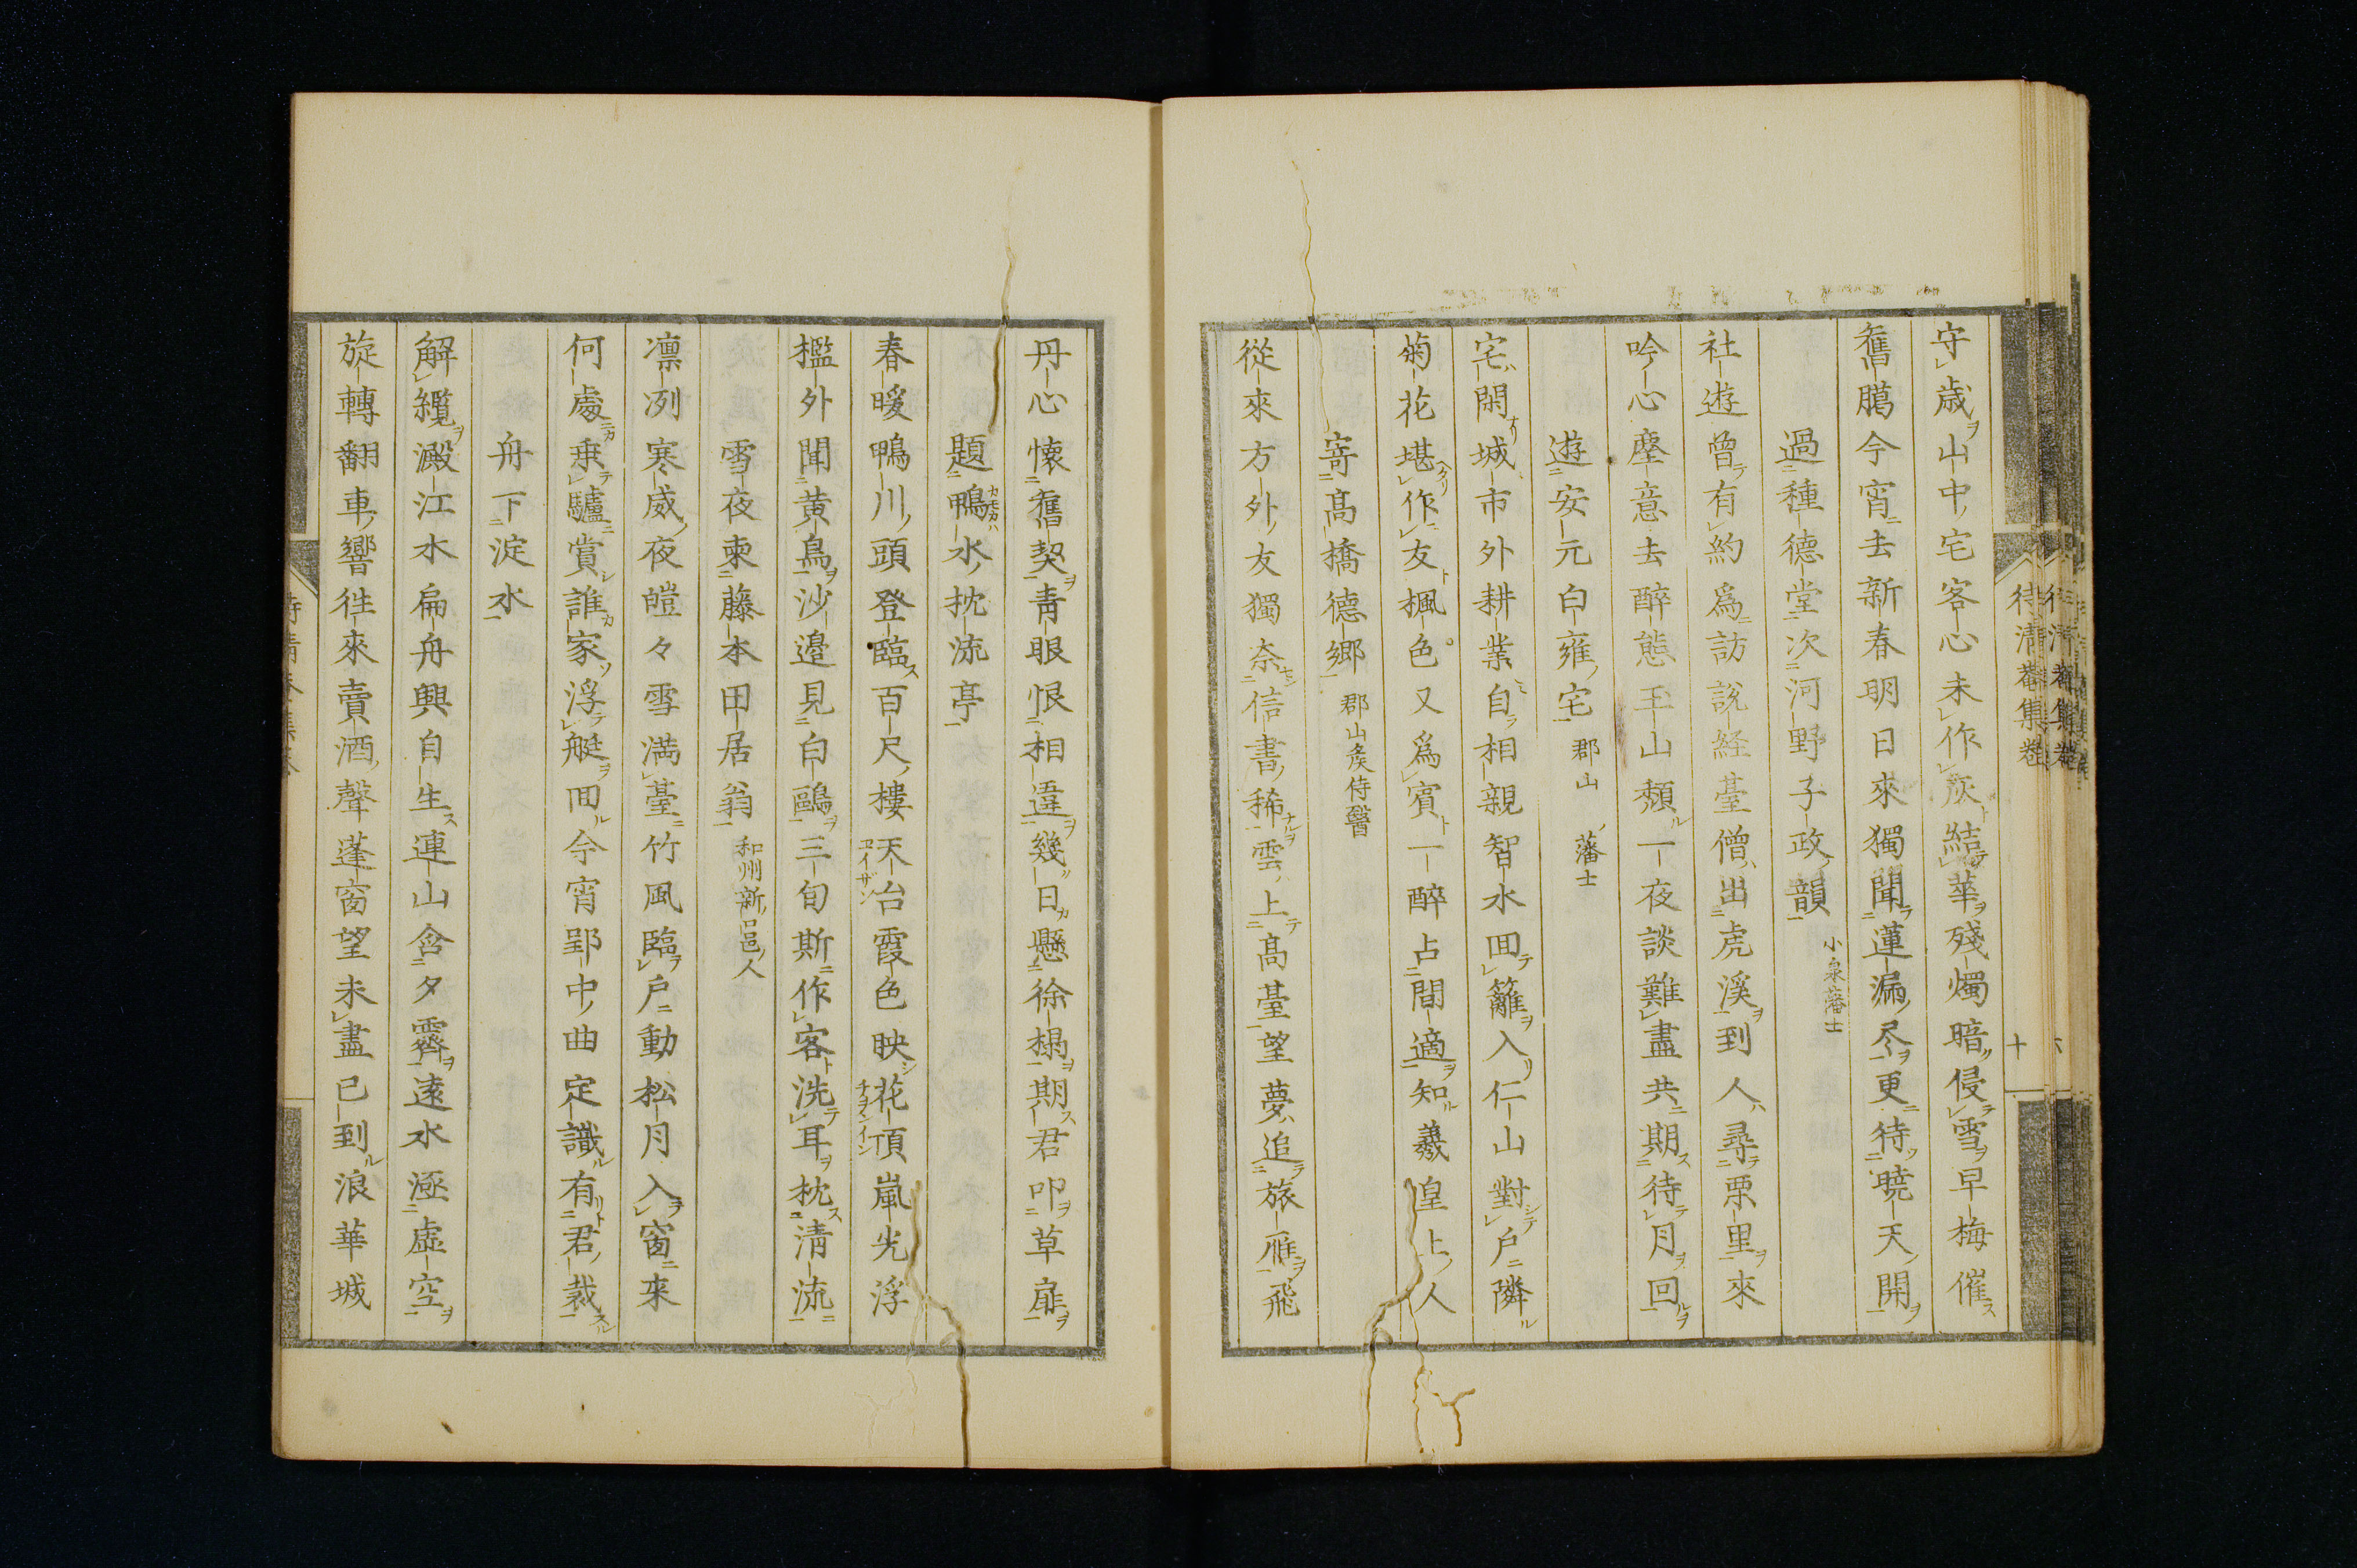 守歳山中宅客心未作灰結華殘燭暗侵雪早梅催
舊臈今宵去新春明日來獨聞蓮漏尽更待曉天開
過種德堂次河野子政韻 小泉藩士
社遊曾有約爲訪説経臺僧出虎溪到人尋栗里來
吟心塵意去醉態玉山頽一夜談難盡共期待月回
遊安元白雍宅 郡山藩士
宅閑城市外耕業自相親智水囘籬入仁山對戸隣
菊花堪作友楓色又爲賓一醉占間適知羲皇上人
寄髙橋德郷 郡山矦侍醫
從來方外友獨奈信書稀雲上髙臺望夢追旅雁飛
待清菴集卷
十
丹心懐舊契青眼恨相違幾日懸徐榻期君叩草扉
題鴨水枕流亭
春暖鴨川頭登臨百尺樓天台霞色映花頂嵐光浮
檻外聞黄鳥沙邉見白鷗三旬斯作客洗耳枕清流
雪夜柬藤本田居翁 和州新口邑人
凛冽寒威夜皚々雪満臺竹風臨戸動松月入窗来
何處乗驢賞誰家浮艇囘今宵郢中曲定識有君裁
舟下淀水
解纜澱江水扁舟興自生連山含夕霽遠水極虚空
旋轉翻車響往來賣酒聲蓬窗望未盡已到浪華城